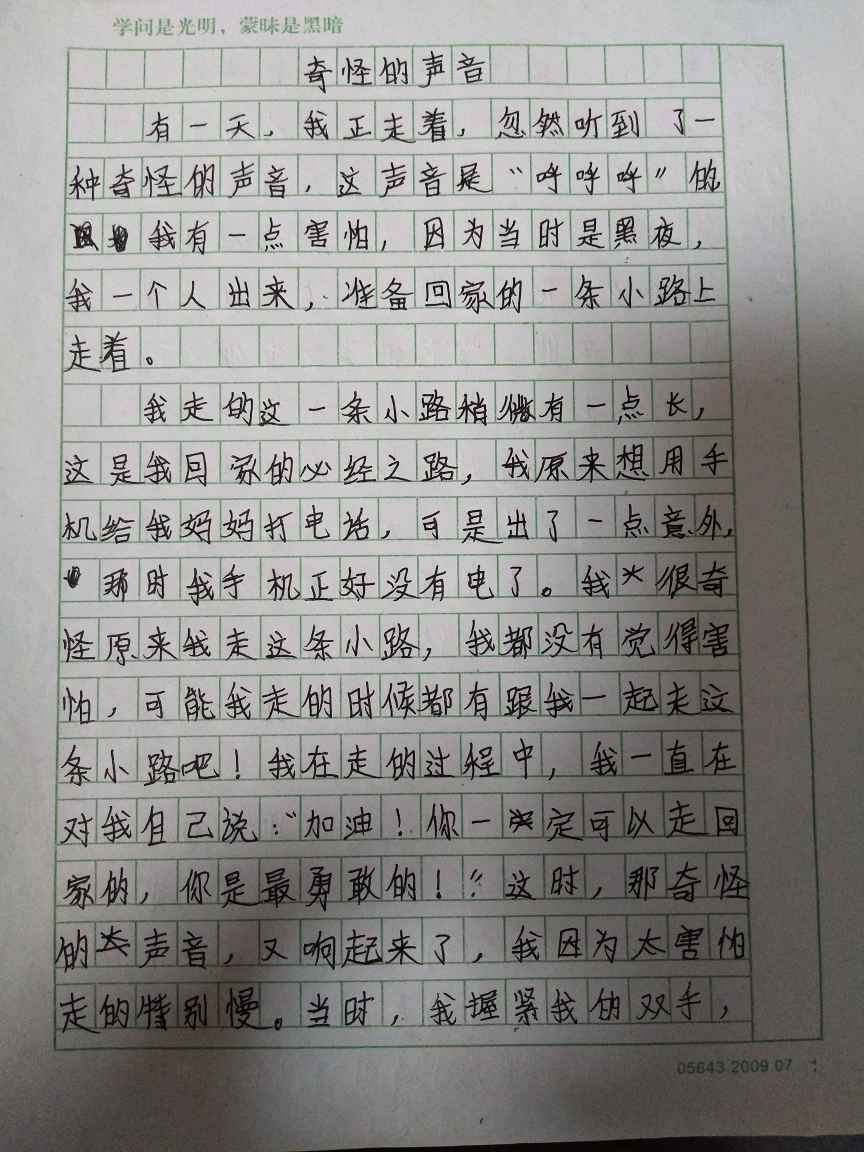 学问是光明，蒙昧是黑暗
奇怪的声音
有一天，我正走着，忽然听到了一
种奇怪的声音，这声音是“呼呼呼”的
我有一点害怕，因为当时是黑夜，
我一个人出来，准备回家的一条小路上
走着。
我走的这一条小路稍微有一点长，
这是我回家的必经之路，我原来想用手
机给我妈妈打电话，可是出了一点意外，
那时我手机正好没有电了。我很奇
怪原来我走这条小路，我都没有觉得害
怕，可能我走的时候都有跟我一起走这
条小路吧！我在走的过程中，我一直在
对我自己说：“加油！你一定可以走回
家的，你是最勇敢的！”这时，那奇怪
的声音，又响起来了，我因为太害怕
走的特别慢。当时，我握紧我的双手，
05643.2009.07